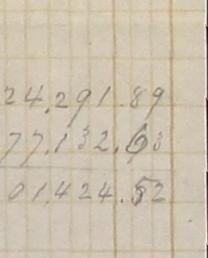 24.291.89
77.132.63
01.424.52